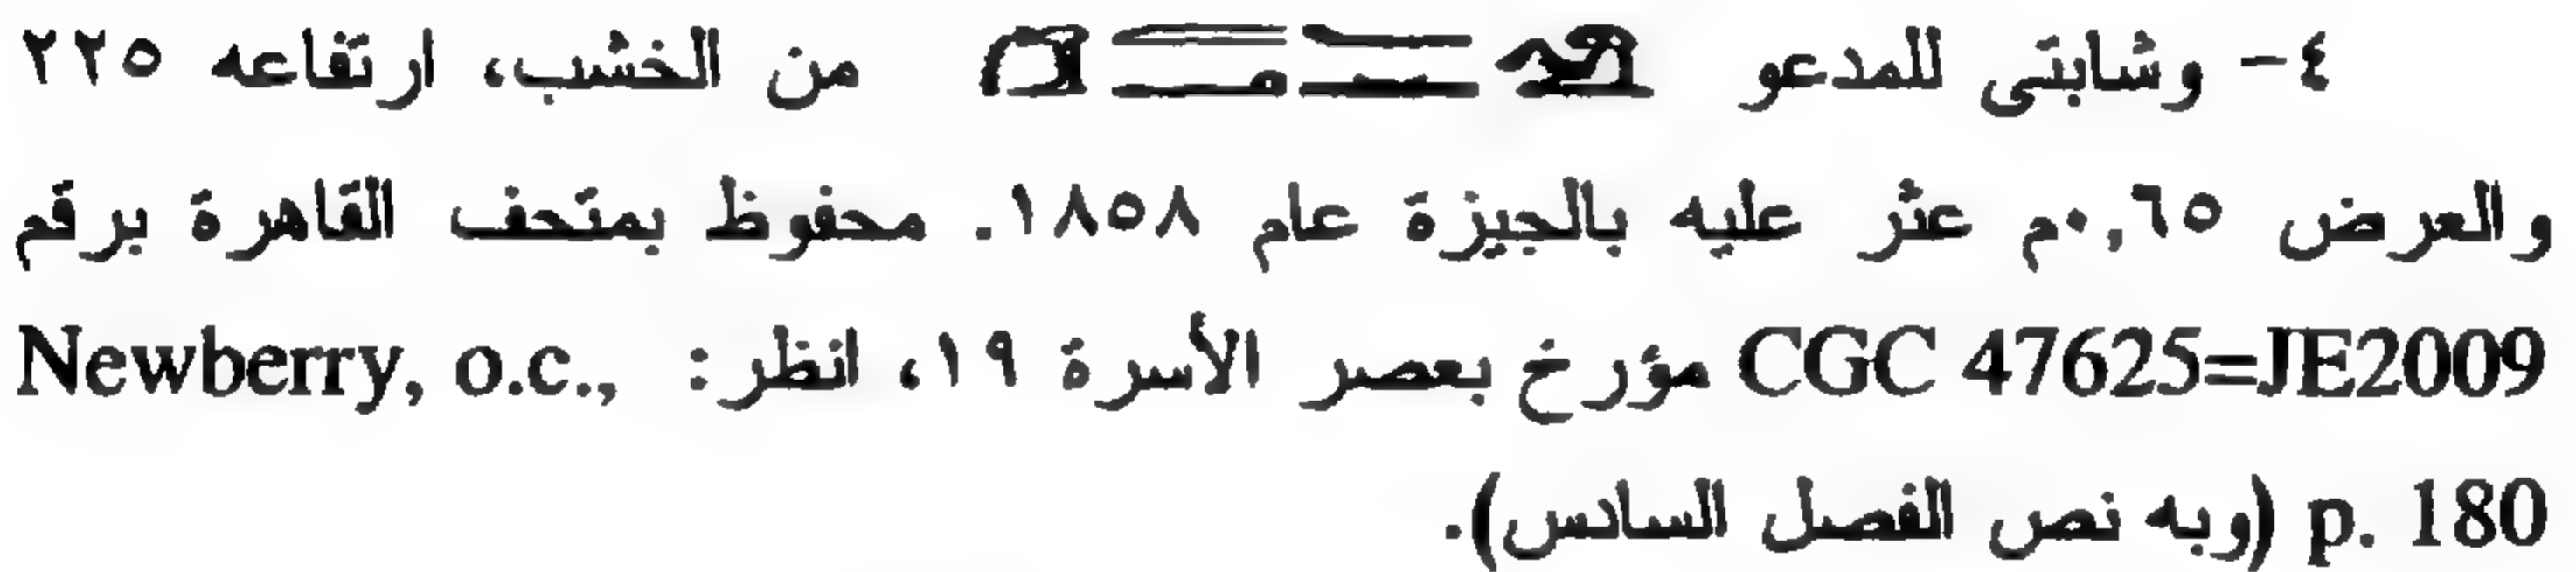 ٤- وشابتى للمدعو من الخشب، ارتفاعه ٢٢٥
والعرض ٠,٦٥م عثر عليه بالجيزة عام ١٨٥٨. محفوظ بمتحف القاهرة برقم
CGC 47625=JE2009 مؤرخ بعصر الأسرة ١٩، انظر: Newberry, o.c.,
p. 180 (وبه نص الفصل السادس).